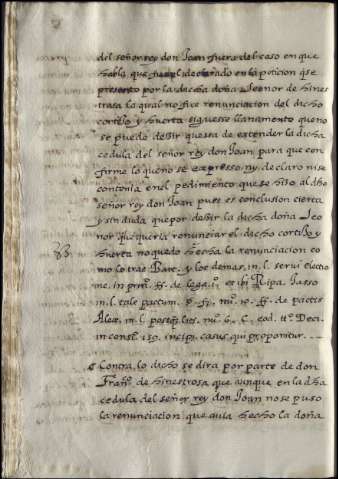 del señor rey don Joan fuera del caso en que
habla que fue el declarado en la peticion q̃ se
presento por la dicha doña Leonor de hines
trosa la qual no fue renunciacion del dicho
cortijo y huerta siguesse llanamente que no
se puede dezir que sea de estender la dicha
cedula del señor rey don Joan para que con
firme lo que no se expresso ny declaro ni se
contenia en el pedimiento que se hizo al dho
señor rey don Joan pues es conclusion cierta
y sin duda que por dezir la dicha doña Leo
nor que queria renunciar el dicho cortijo y
huerta no quedo hecha la renunciacion co
mo lo trae Bart. y los demas in. l. serui electio
ne. in prin. ff. de lega. 1º. et ibi Ripa. Jasso
in. l. tale pactum. ff. de pactis
Alex. in. l. C. eod. tt.º Deci.
in consil. 150. incipi. casus qui proponitur.
Contra lo dicho se dira por parte de don
Fran.co de hinestrosa que aunque en la dha
cedula del señor rey don Joan no se puso
la renunciacion que auia hecho la doña